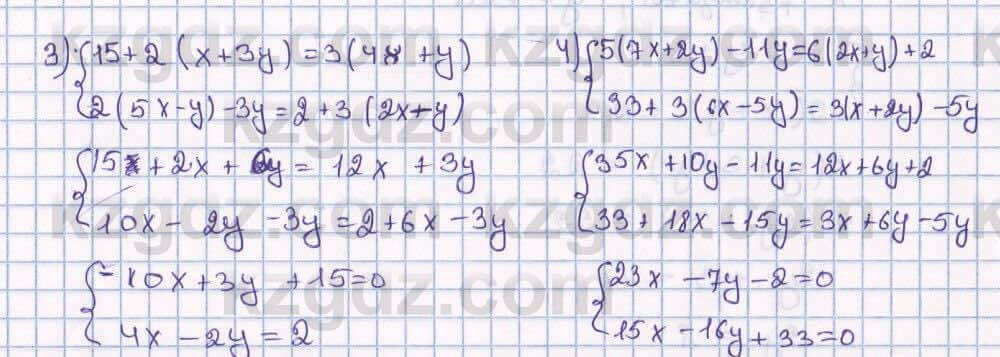 3) { 15+2(x+3y)=3(4x+y)
2(5x-y)-3y=2+3(2x+y)
{ 15+2x+6y=12x+3y
10x-2y-3y=2+6x-3y
{ -10x+3y+15=0
4x-2y=2
4) { 5(7x+2y)-11y=6(2x+y)+2
33+3(6x-5y)=3(x+2y)-5y
{ 35x+10y-11y=12x+6y+2
33+18x-15y=3x+6y-5y
{ 23x-7y-2=0
15x-16y+33=0
kzgdz.com